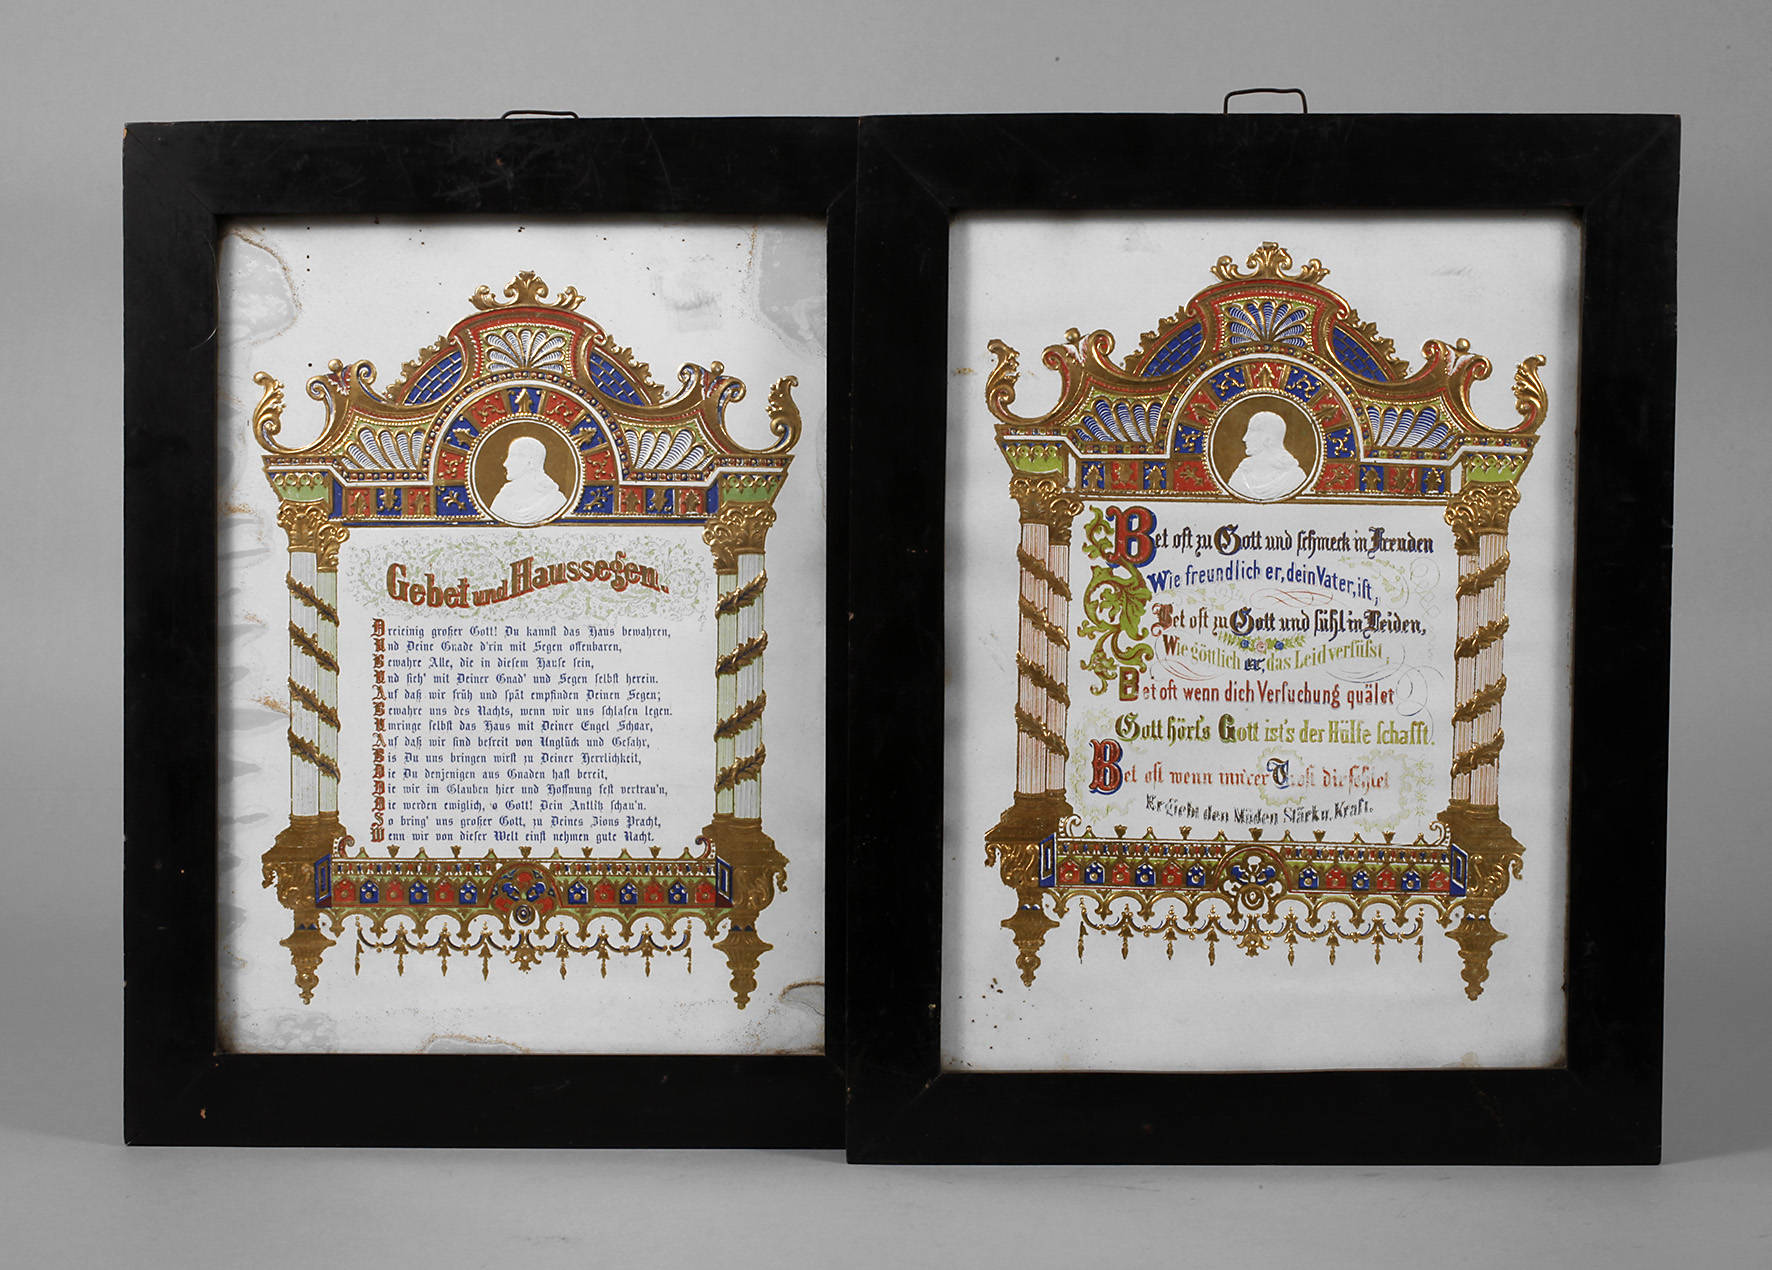 Gebet und Haussegen.
Dreieinig großer Gott! Du kannst das Haus bewahren,
Und Deine Gnade d'rin mit Segen offenbaren,
Bewahre Alle, die in diesem Hause sein,
Und sieh' mit Deiner Gnad' und Segen selbst herein.
Auf daß wir früh und spät empfinden Deinen Segen;
Bewahre uns des Nachts, wenn wir uns schlafen legen.
Umringe selbst das Haus mit Deiner Engel Schaar,
Auf daß wir sind befreit von Unglück und Gefahr,
Bis Du uns bringen wirst zu Deiner Herrlichkeit,
Die Du denjenigen aus Gnaden hast bereit,
Die wir im Glauben hier und Hoffnung fest vertrau'n,
Die werden ewiglich, o Gott! Dein Antlitz schau'n.
So bring' uns großer Gott, zu Deines Zions Pracht,
Wenn wir von dieser Welt einst nehmen gute Nacht.
Bet oft zu Gott und schmeck in Freuden
Wie freundlich er, dein Vater, ist,
Bet oft zu Gott und fühl in Leiden,
Wie göttlich er, das Leid versüßt,
Bet oft wenn dich Versuchung quälet
Gott hört's Gott ist's der Hülfe schafft.
Bet oft wenn inn'rer Trost dir fehlet
Er giebt den Müden Stärk u. Kraft.